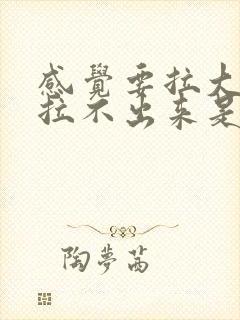 感覺要拉大
拉不出來是
陶夢茜